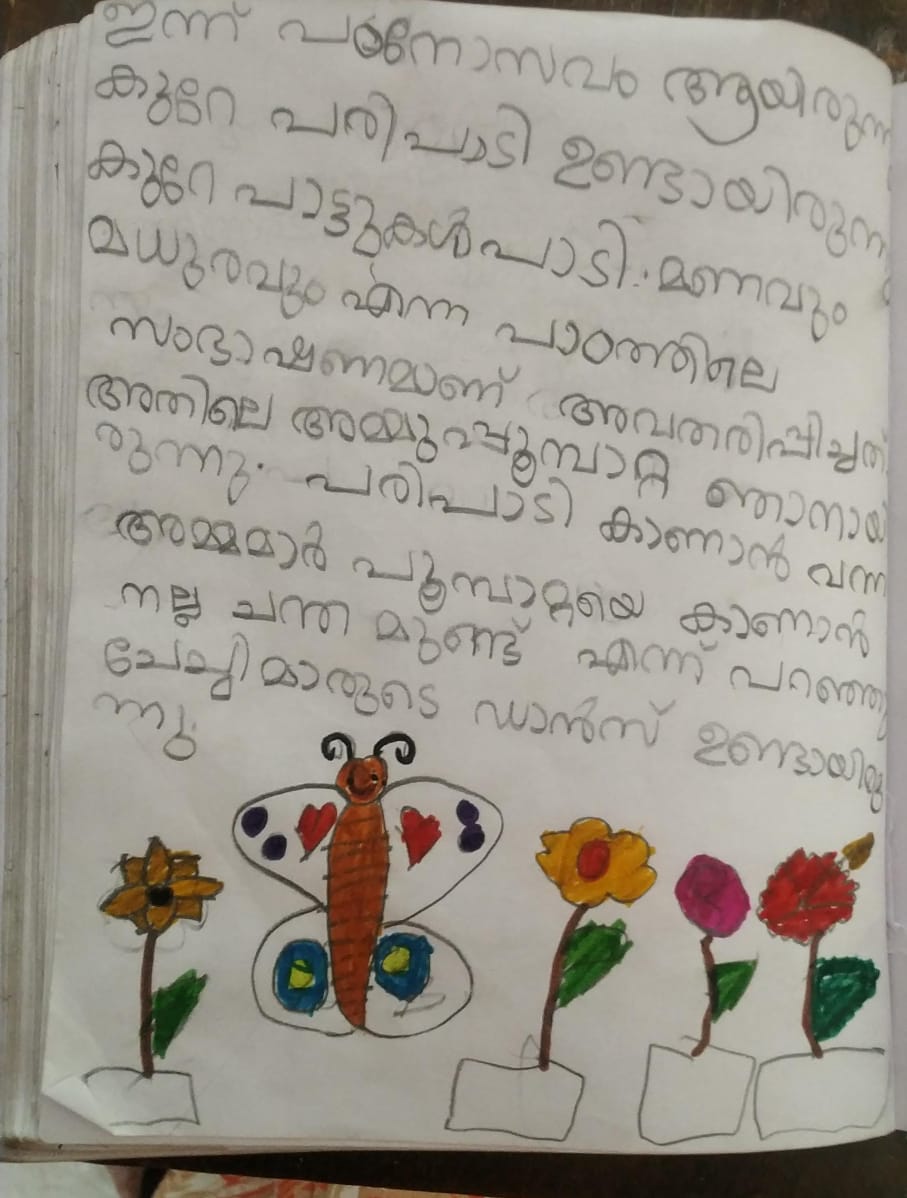 ഇന്ന് പഠനോസവം ആയിരുന്ന
കുറേ പരിപാടി ഉണ്ടായിരുന്നു
കുറേ പാട്ടുകൾ പാടി. മണവും
മധുരവും എന്ന പാഠത്തിലെ
സംഭാഷണമാണ് അവതരിപ്പിച്ചത്
അതിലെ അമ്മുപ്പൂമ്പാറ്റ ഞാനായി
രുന്നു. പരിപാടി കാണാൻ വന്ന
അമ്മമാർ പൂമ്പാറ്റയെ കാണാൻ
നല്ല ചന്ത മുണ്ട് എന്ന് പറഞ്ഞു
ചേച്ചിമാരുടെ ഡാൻസ് ഉണ്ടായിരു
ന്നു.